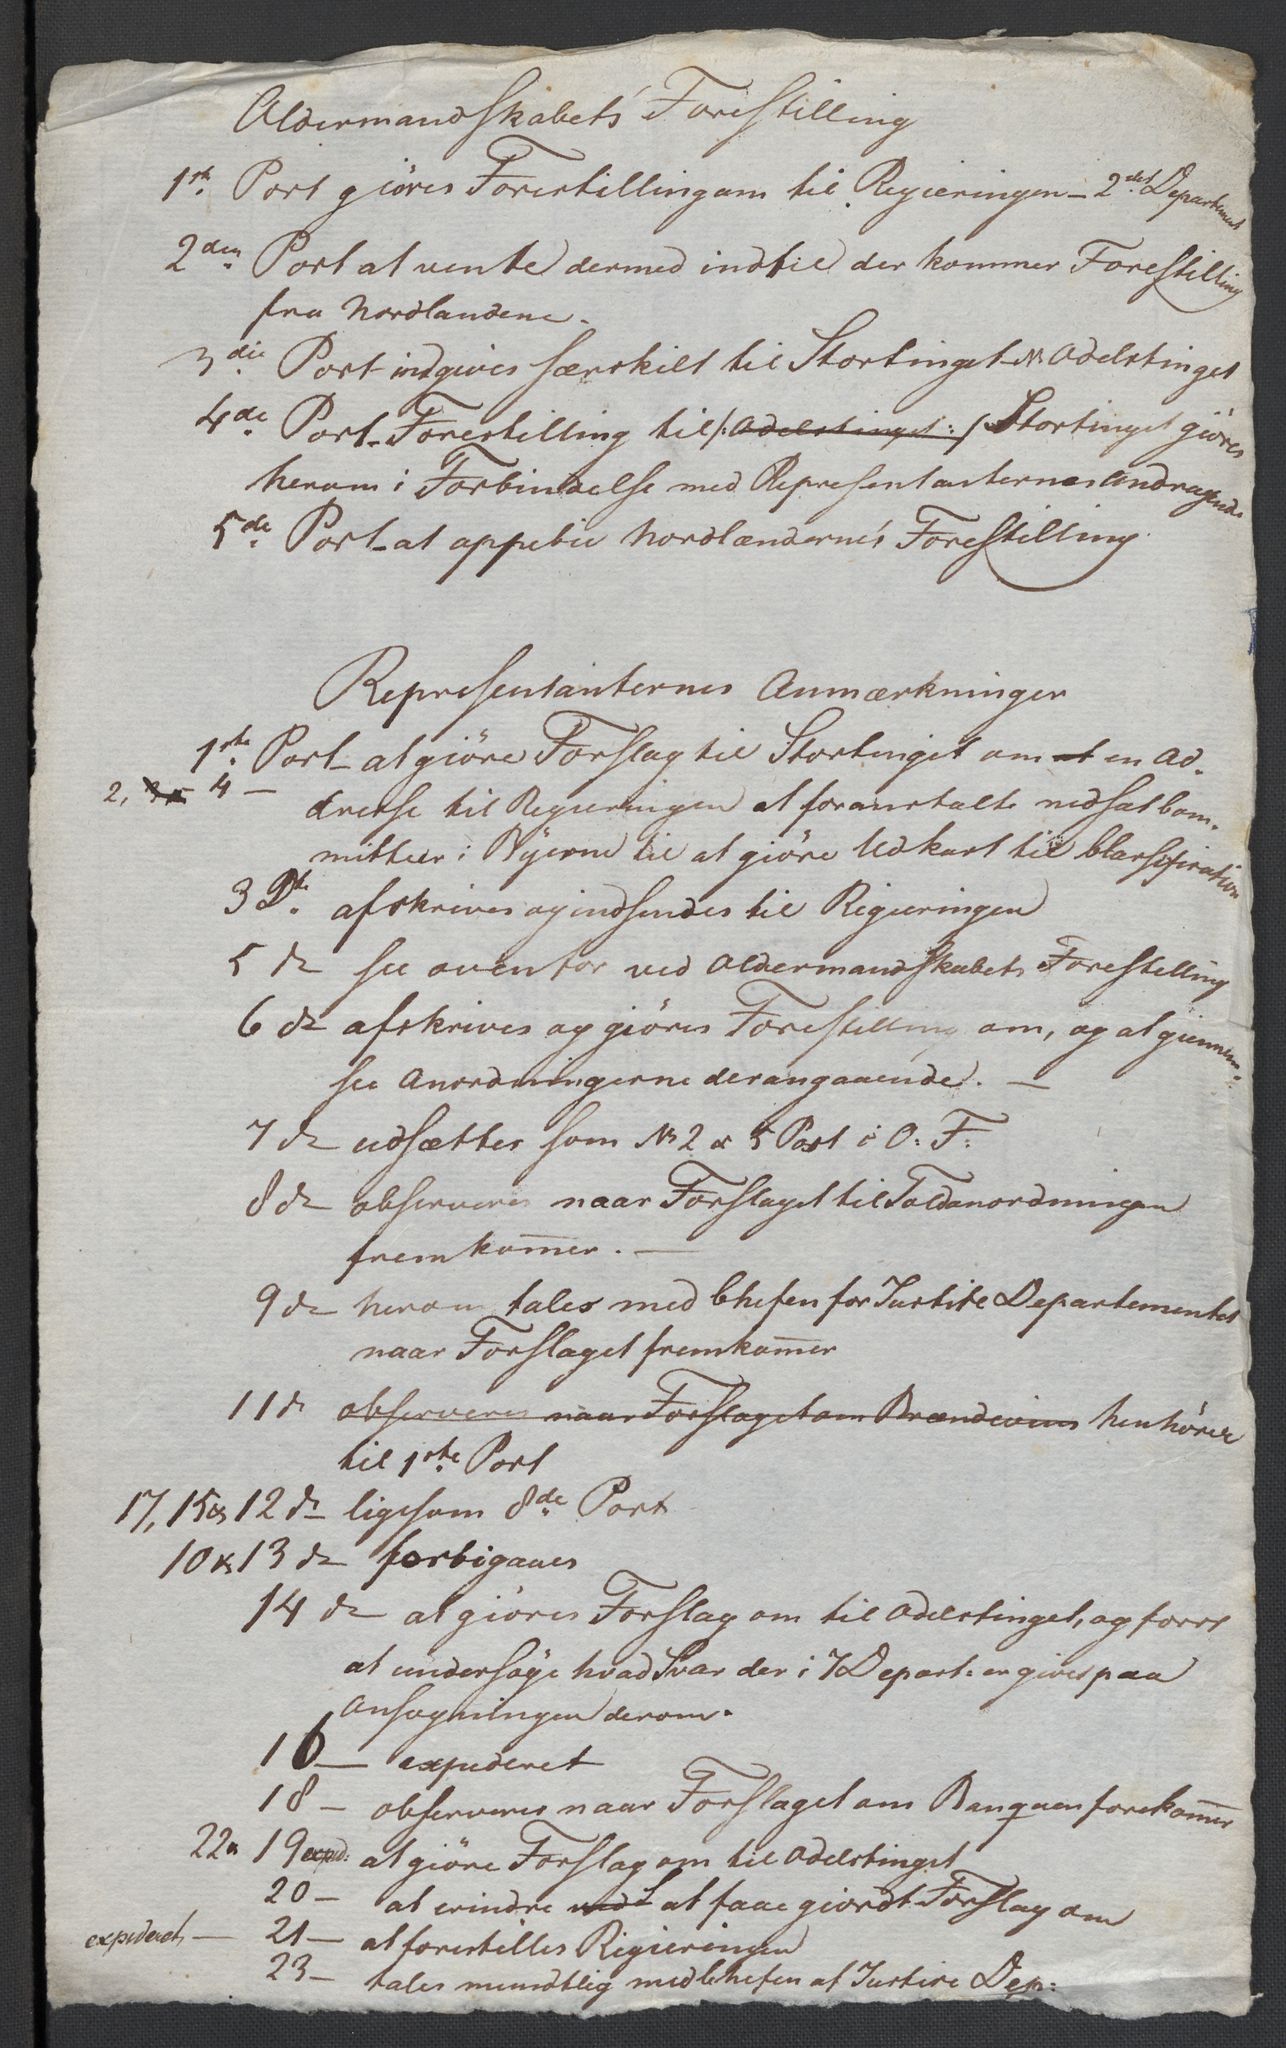 Oldermandskabets Forestilling
1ste Post giöres Forestilling om til Regieringen - 2det Departement
2den Post at vente dermed indtil der kommer Forestilling
fra Nordlandene.
3die Post indgives særskilt til Stortinget Odelstinget
4de Post - Forestilling til /: Odelstinget :/ Stortinget giöres
herom i Forbindelse med Repræsentanternes Andragende
5de Post - at oppebie Nordlændernes Forestilling
Repræsentanternes Anmærkninger
1ste Post - at giöre Forslag til Stortinget om at en Ad-
2, 4 - dresse til Regieringen at foranstalte nedsat Com-
mitteer i Byerne til at giöre Udkast til Classification
3 Dto afskrives og indsendes til Regieringen
5 do see ovenfor ved Oldermandskabets Forestilling
6 do afskrives og giöres Forestilling om, og at giennem-
see Anordningerne derangaaende. -
7 do udsættes som No 2 & 5 Post i O: F:
8 do observeres naar Forslaget til Toldanordningen
fremkom̅er. -
9 do herom tales med Chefen for Justits Departementet
naar Forslaget fremkom̅er
11 do observeres naar Forslaget om Brændeviin henhörer
til 1ste Post
17, 15 & 12 do ligesom 8de Post
10 & 13 do forbigaaes
14 do at giöres Forslag om til Odelstinget, og först
at undersöge hvad Svar der i 7 Depart: er givet paa
Ansögningen derom.
16 - expederet
18 - observeres naar Forslaget om Banquen forekom̅er
22 & 19 exped: at giöre Forslag om til Odelstinget
20 - at erindre at faae giordt Forslag om
expederet - 21 - at forestilles Regieringen
23 - tales mundtlig med Chefen af Justice Dep: